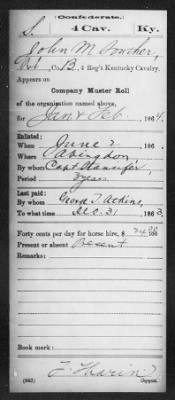 Confederate.
S. 4 Cav. Ky.
John M
Co. B, 4 Reg't Kentucky Cavalry.
Appears on
Company Muster Roll
of the organization named above,
for Jan & Feb, 1864.
Enlisted:
When June 2, 186
Where Abingdon,
By whom Capt
Period 3 years
Last paid:
By whom George T. Atkins,
To what time Dec. 31, 1863.
Forty cents per day for horse hire, $
Present or absent Present
Remarks:
Book mark:
(642) Copyist.